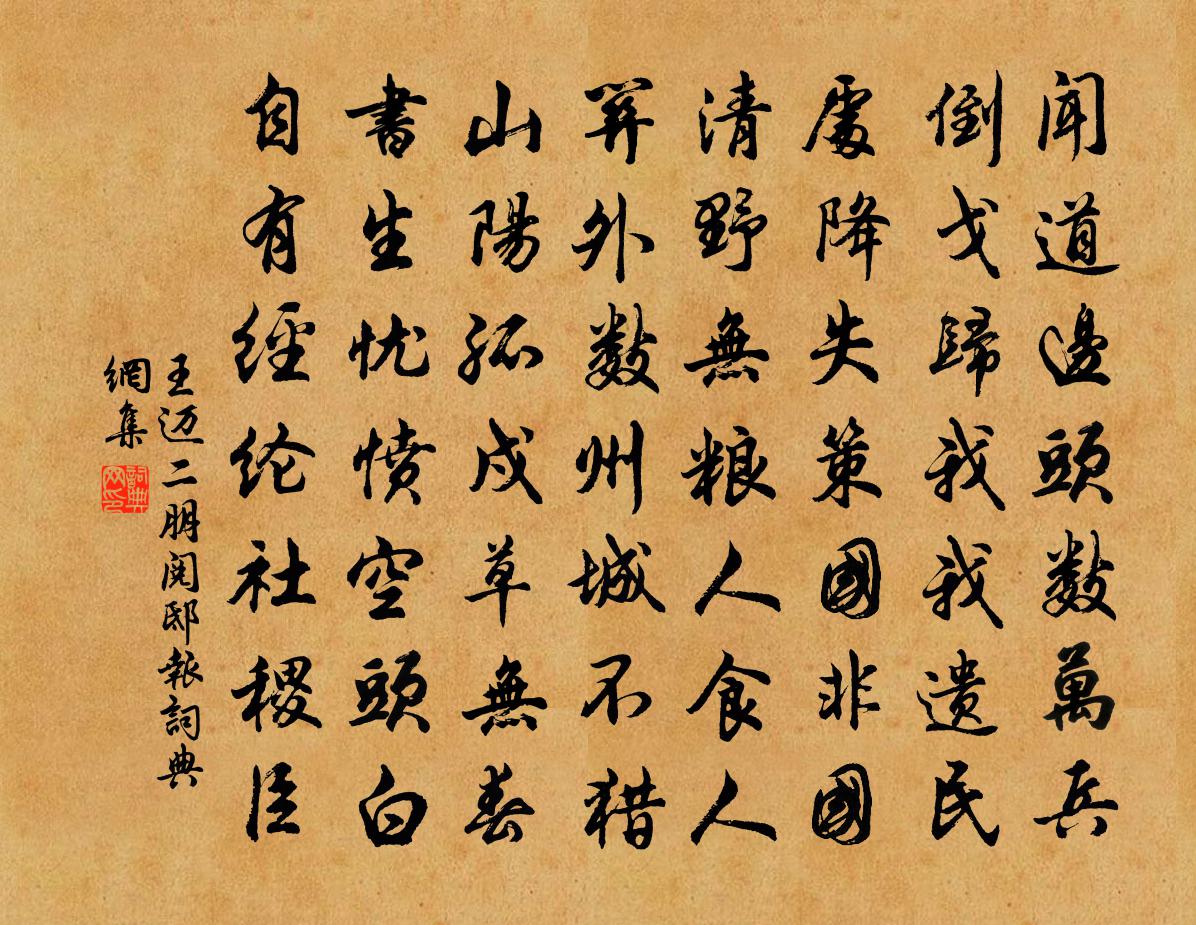 聞道邊頭數萬兵
倒戈歸我我遺民
處降失策國非國
清野無粮人食人
筭外數州城不猎
山陽孤戍草無春
書生忧憤空頭白
自有經纶社稷臣
王迈二朋閱邸報詞典
網集
詞典网印